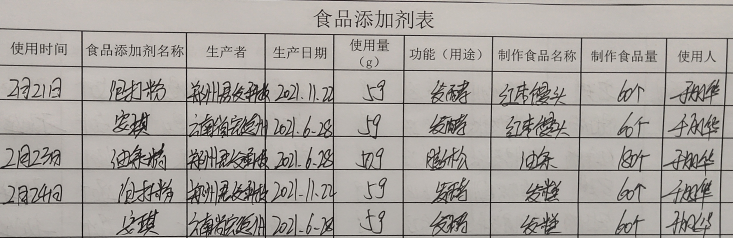 食品添加剂表
使用时间 食品添加剂名称 生产者 生产日期 使用量（g） 功能（用途） 制作食品名称 制作食品量 使用人
2月21日 泡打粉 郑州 2021.11.22 5g 发酵 红枣馒头 60个
安琪 云南 2021.6.28 5g 发酵 红枣馒头 60个
2月23日 油条精 郑州 2021.6.28 膨松 油条 180个
2月24日 泡打粉 郑州 2021.11.22 5g 发酵 发糕 60个
安琪 云南 2021.6.28 5g 发酵 发糕 60个